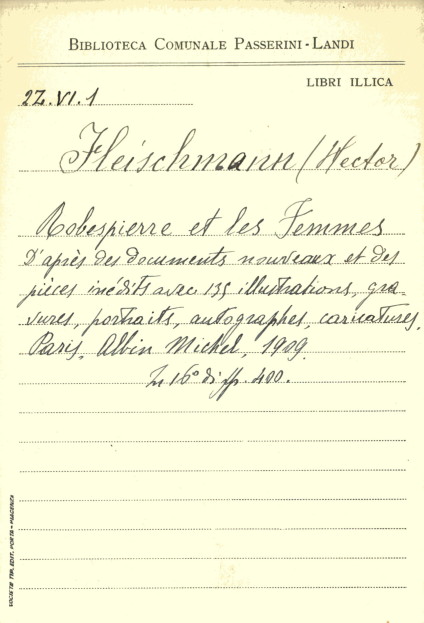 BIBLIOTECA COMUNALE PASSERINI-LANDI
LIBRI ILLICA
2Z.VI.1
Fleischmann (Hector)
Robespierre et les Femmes
D'après des documents nouveaux et des
pièces inédits avec 135 illustrations, gra-
vures, portraits, autographes, caricatures.
Paris, Albin Michel, 1909.
In 16° di pp. 400.
SOCIETÀ TIP. EDIT. PORTA - PIACENZA